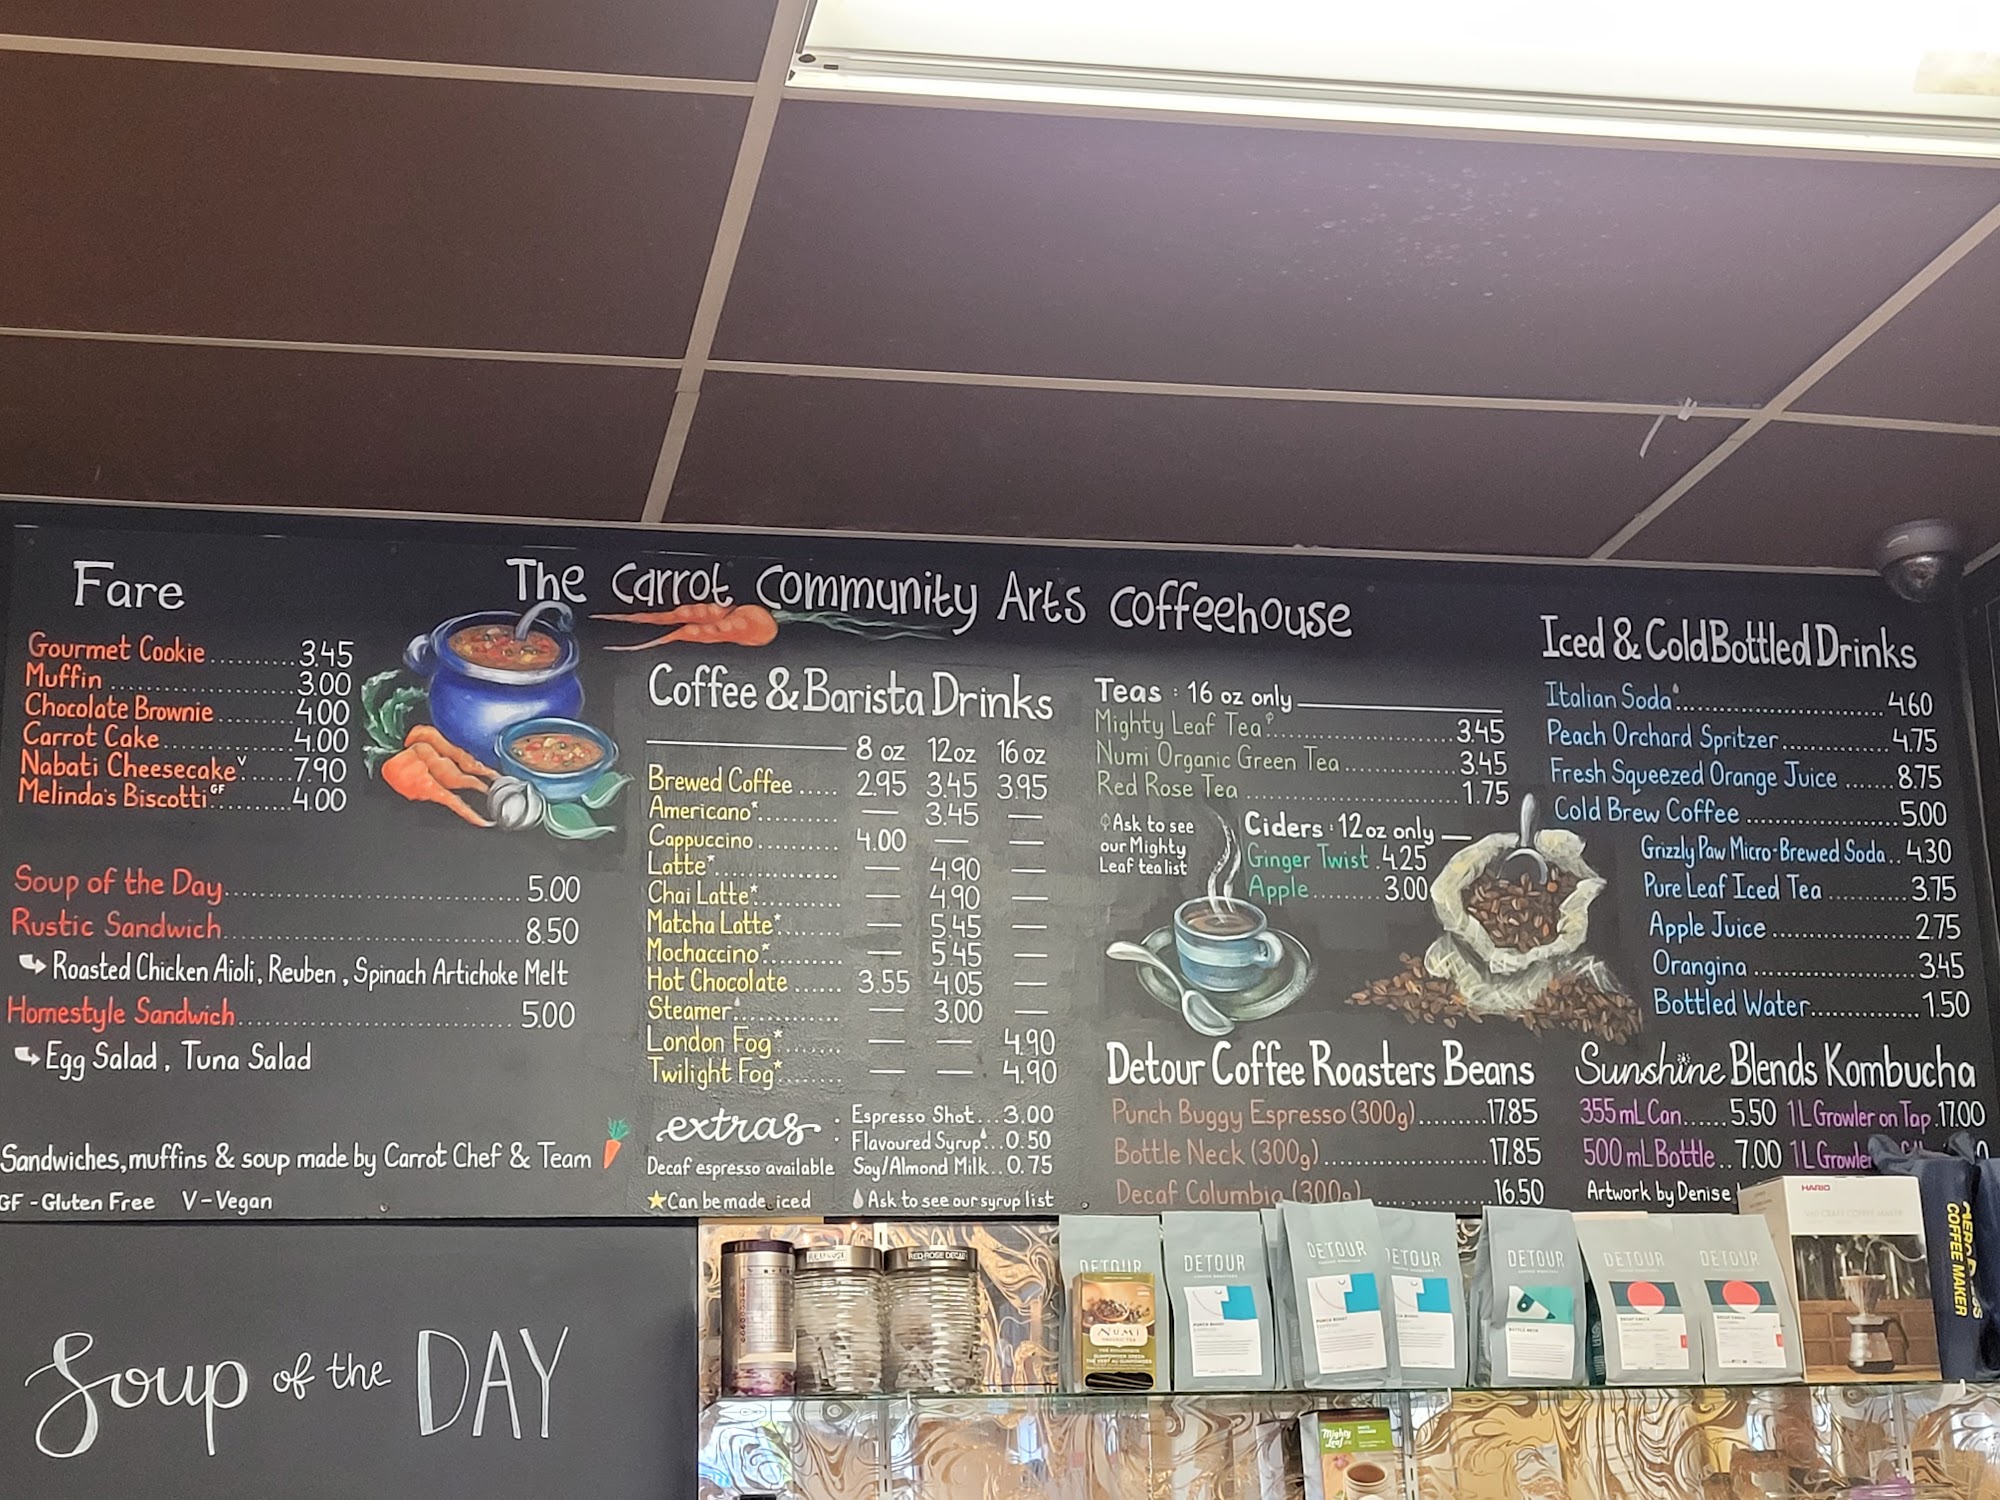 The Carrot Community Arts Coffeehouse
Fare
Gourmet Cookie..........3.45
Muffin....................3.00
Chocolate Brownie.........4.00
Carrot Cake...............4.00
Nabati Cheesecake V.....7.90
Melinda's Biscotti GF.......4.00
Soup of the Day..............................5.00
Rustic Sandwich..............................8.50
Roasted Chicken Aioli, Reuben, Spinach Artichoke Melt
Homestyle Sandwich..........................5.00
Egg Salad, Tuna Salad
Sandwiches, muffins & soup made by Carrot Chef & Team
GF - Gluten Free V - Vegan
Soup of the DAY
Coffee & Barista Drinks
8 oz 12oz 16 oz
Brewed Coffee ..... 2.95 3.45 3.95
Americano*......... — 3.45 —
Cappuccino ......... 4.00 — —
Latte*.............. — 4.90 —
Chai Latte*......... — 4.90 —
Matcha Latte*....... — 5.45 —
Mochaccino*........ — 5.45 —
Hot Chocolate ...... 3.55 4.05 —
Steamer............. — 3.00 —
London Fog*........ — — 4.90
Twilight Fog*....... — — 4.90
extras : Espresso Shot...3.00
Flavoured Syrup...0.50
Decaf espresso available Soy/Almond Milk..0.75
★Can be made iced Ask to see our syrup list
Teas : 16 oz only
Mighty Leaf Tea.......................3.45
Numi Organic Green Tea.............3.45
Red Rose Tea..........................1.75
Ask to see
our Mighty
Leaf tea list
Ciders : 12 oz only
Ginger Twist .4.25
Apple.........3.00
Detour Coffee Roasters Beans
Punch Buggy Espresso (300g).........17.85
Bottle Neck (300g).....................17.85
Decaf Columbia (300g)................16.50
Iced & Cold Bottled Drinks
Italian Soda..............................4.60
Peach Orchard Spritzer..............4.75
Fresh Squeezed Orange Juice .......8.75
Cold Brew Coffee ......................5.00
Grizzly Paw Micro-Brewed Soda..4.30
Pure Leaf Iced Tea .............3.75
Apple Juice ....................2.75
Orangina .......................3.45
Bottled Water...............1.50
Sunshine Blends Kombucha
355 mL Can......5.50 1L Growler on Tap.17.00
500 mL Bottle..7.00 1L Growler
Artwork by Denise
RED ROSE DECAF
DETOUR
NUMI
DETOUR
DETOUR
DETOUR
DETOUR
BOTTLE NECK
DETOUR
DETOUR
HARIO
COFFEE MAKER
Mighty
Leaf